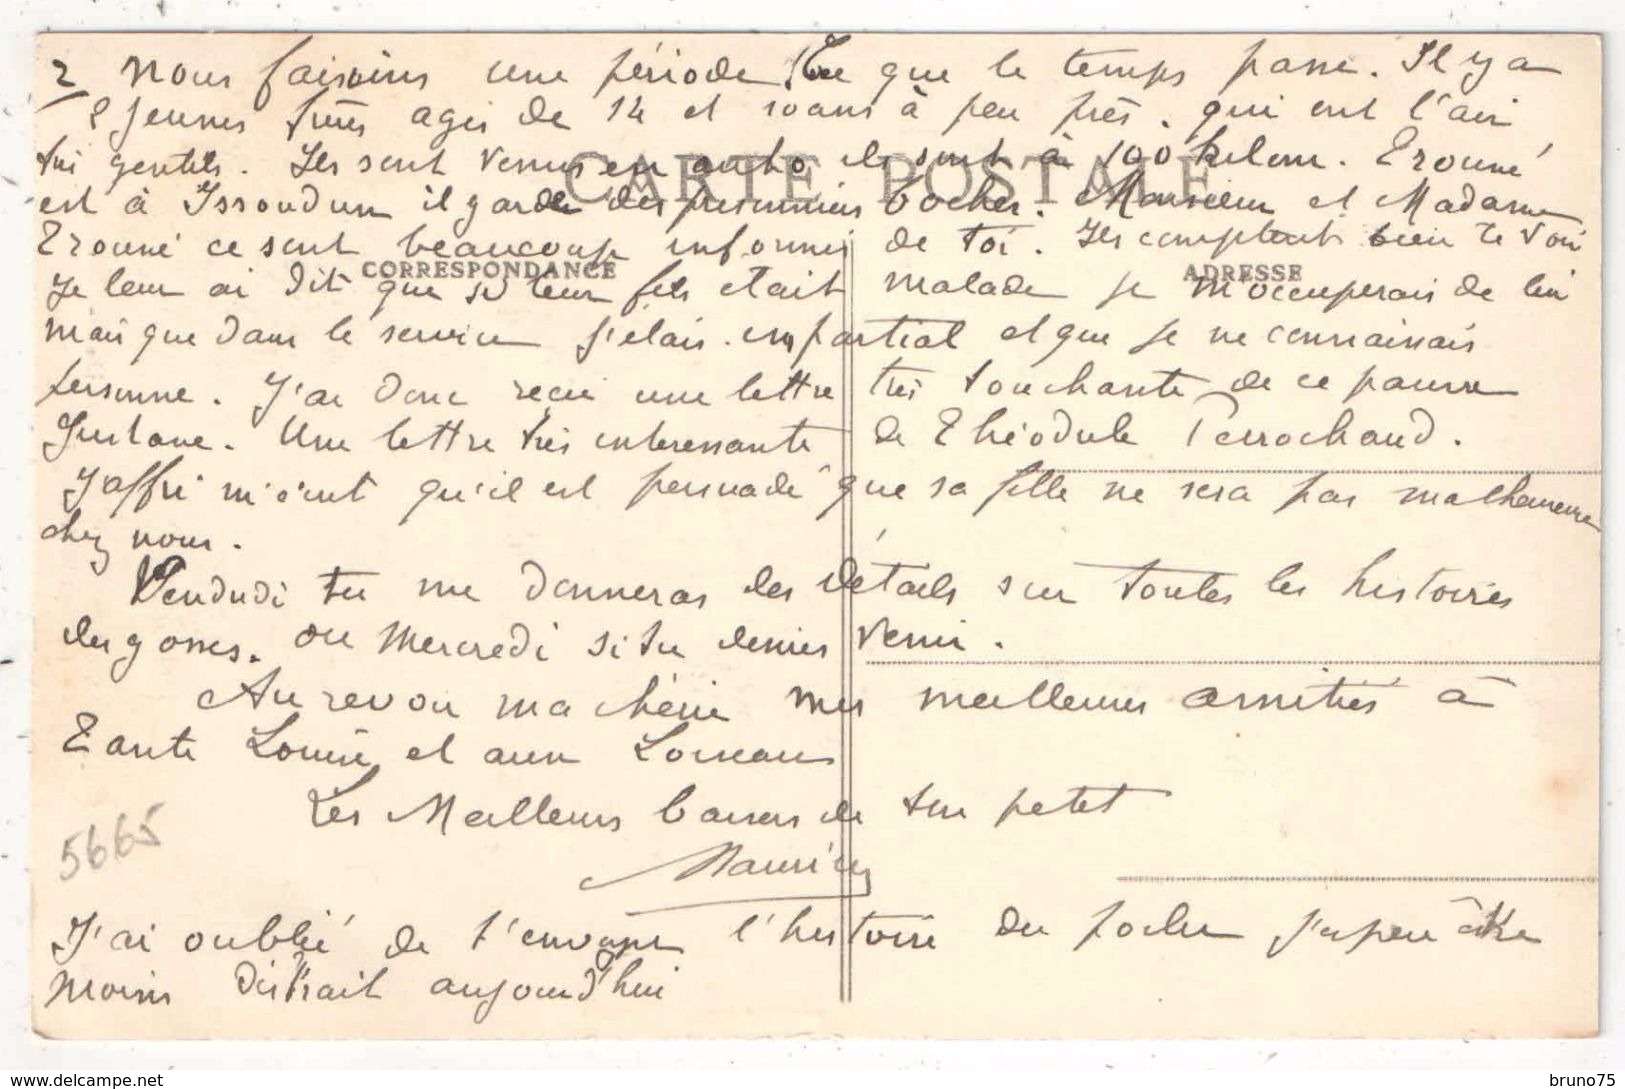 2 Nous faisions une période que le temps passe. Il y a
2 jeunes frères agés de 14 et 10 ans à peu près. qui ont l'air
très gentils. Ils sont venus en auto ils sont à 100 kilom. Erouné
CARTE POSTALE
est à Issoudun il garde des prisonniers boches. Monsieur et Madame
Erouné ce sont beaucoup informés de toi. Ils comptent bien te voir
CORRESPONDANCE
ADRESSE
Je leur ai dit que si leur fils etait malade je m'occuperais de lui
mais que dans le service j'étais impartial et que je ne connaissais
personne. J'ai donc reçu une lettre très touchante de ce pauvre
Gustave. Une lettre très interessante de Théodule Perrochaud.
J'affré m'écrit qu'il est persuadé que sa fille ne sera pas malheureuse
chez nous.
Vendredi tu me donneras des détails sur toutes les histoires
des gosses. ou Mercredi si tu venir.
Au revoir ma chérie mes meilleures amitiés à
Tante Louise et aux Loiseau
Les Meilleurs baisers de ton petit
Maurice
5665
J'ai oublié de t'envoyer l'histoire du
moins distrait aujourd'hui
www.delcampe.net
bruno75